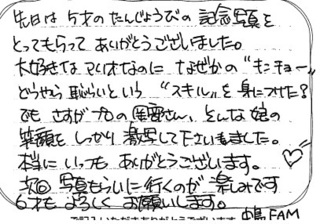 先日は5才のたんじょうびの記念写真を
とってもらってありがとうございました。
大好きなマイオなのになぜかの"キンチョー"
どうやら恥じらいという"スキル"を身につけた?
でもさすがプロの さん、そんな娘の
笑顔をしっかり激写して下さいました。
本当にいつもありがとうございます。
次回写真もらいに行くのが楽しみです
6才もよろしくお願いします。
中島FAM
ご記入いただきありがとうございます